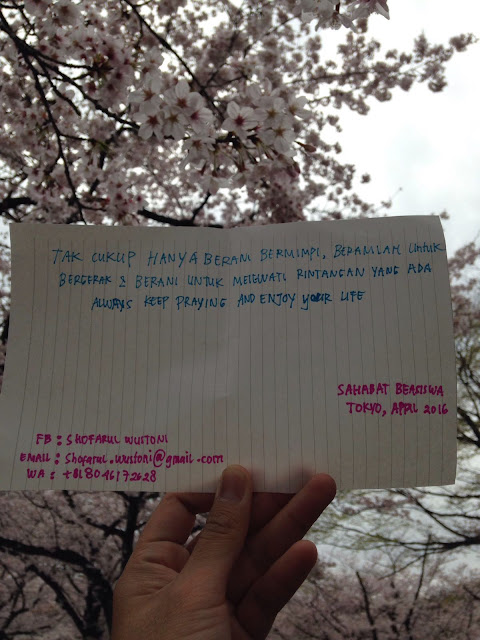 TAK CUKUP HANYA BERANI BERMIMPI, BERANILAH UNTUK
BERGERAK & BERANI UNTUK MELEWATI RINTANGAN YANG ADA
ALWAYS KEEP PRAYING AND ENJOY YOUR LIFE
SAHABAT BEASISWA
TOKYO, APRIL 2016
FB : SHOFARUL WUSTONI
EMAIL : Shofarul.wustoni@gmail.com
WA : +818046172628